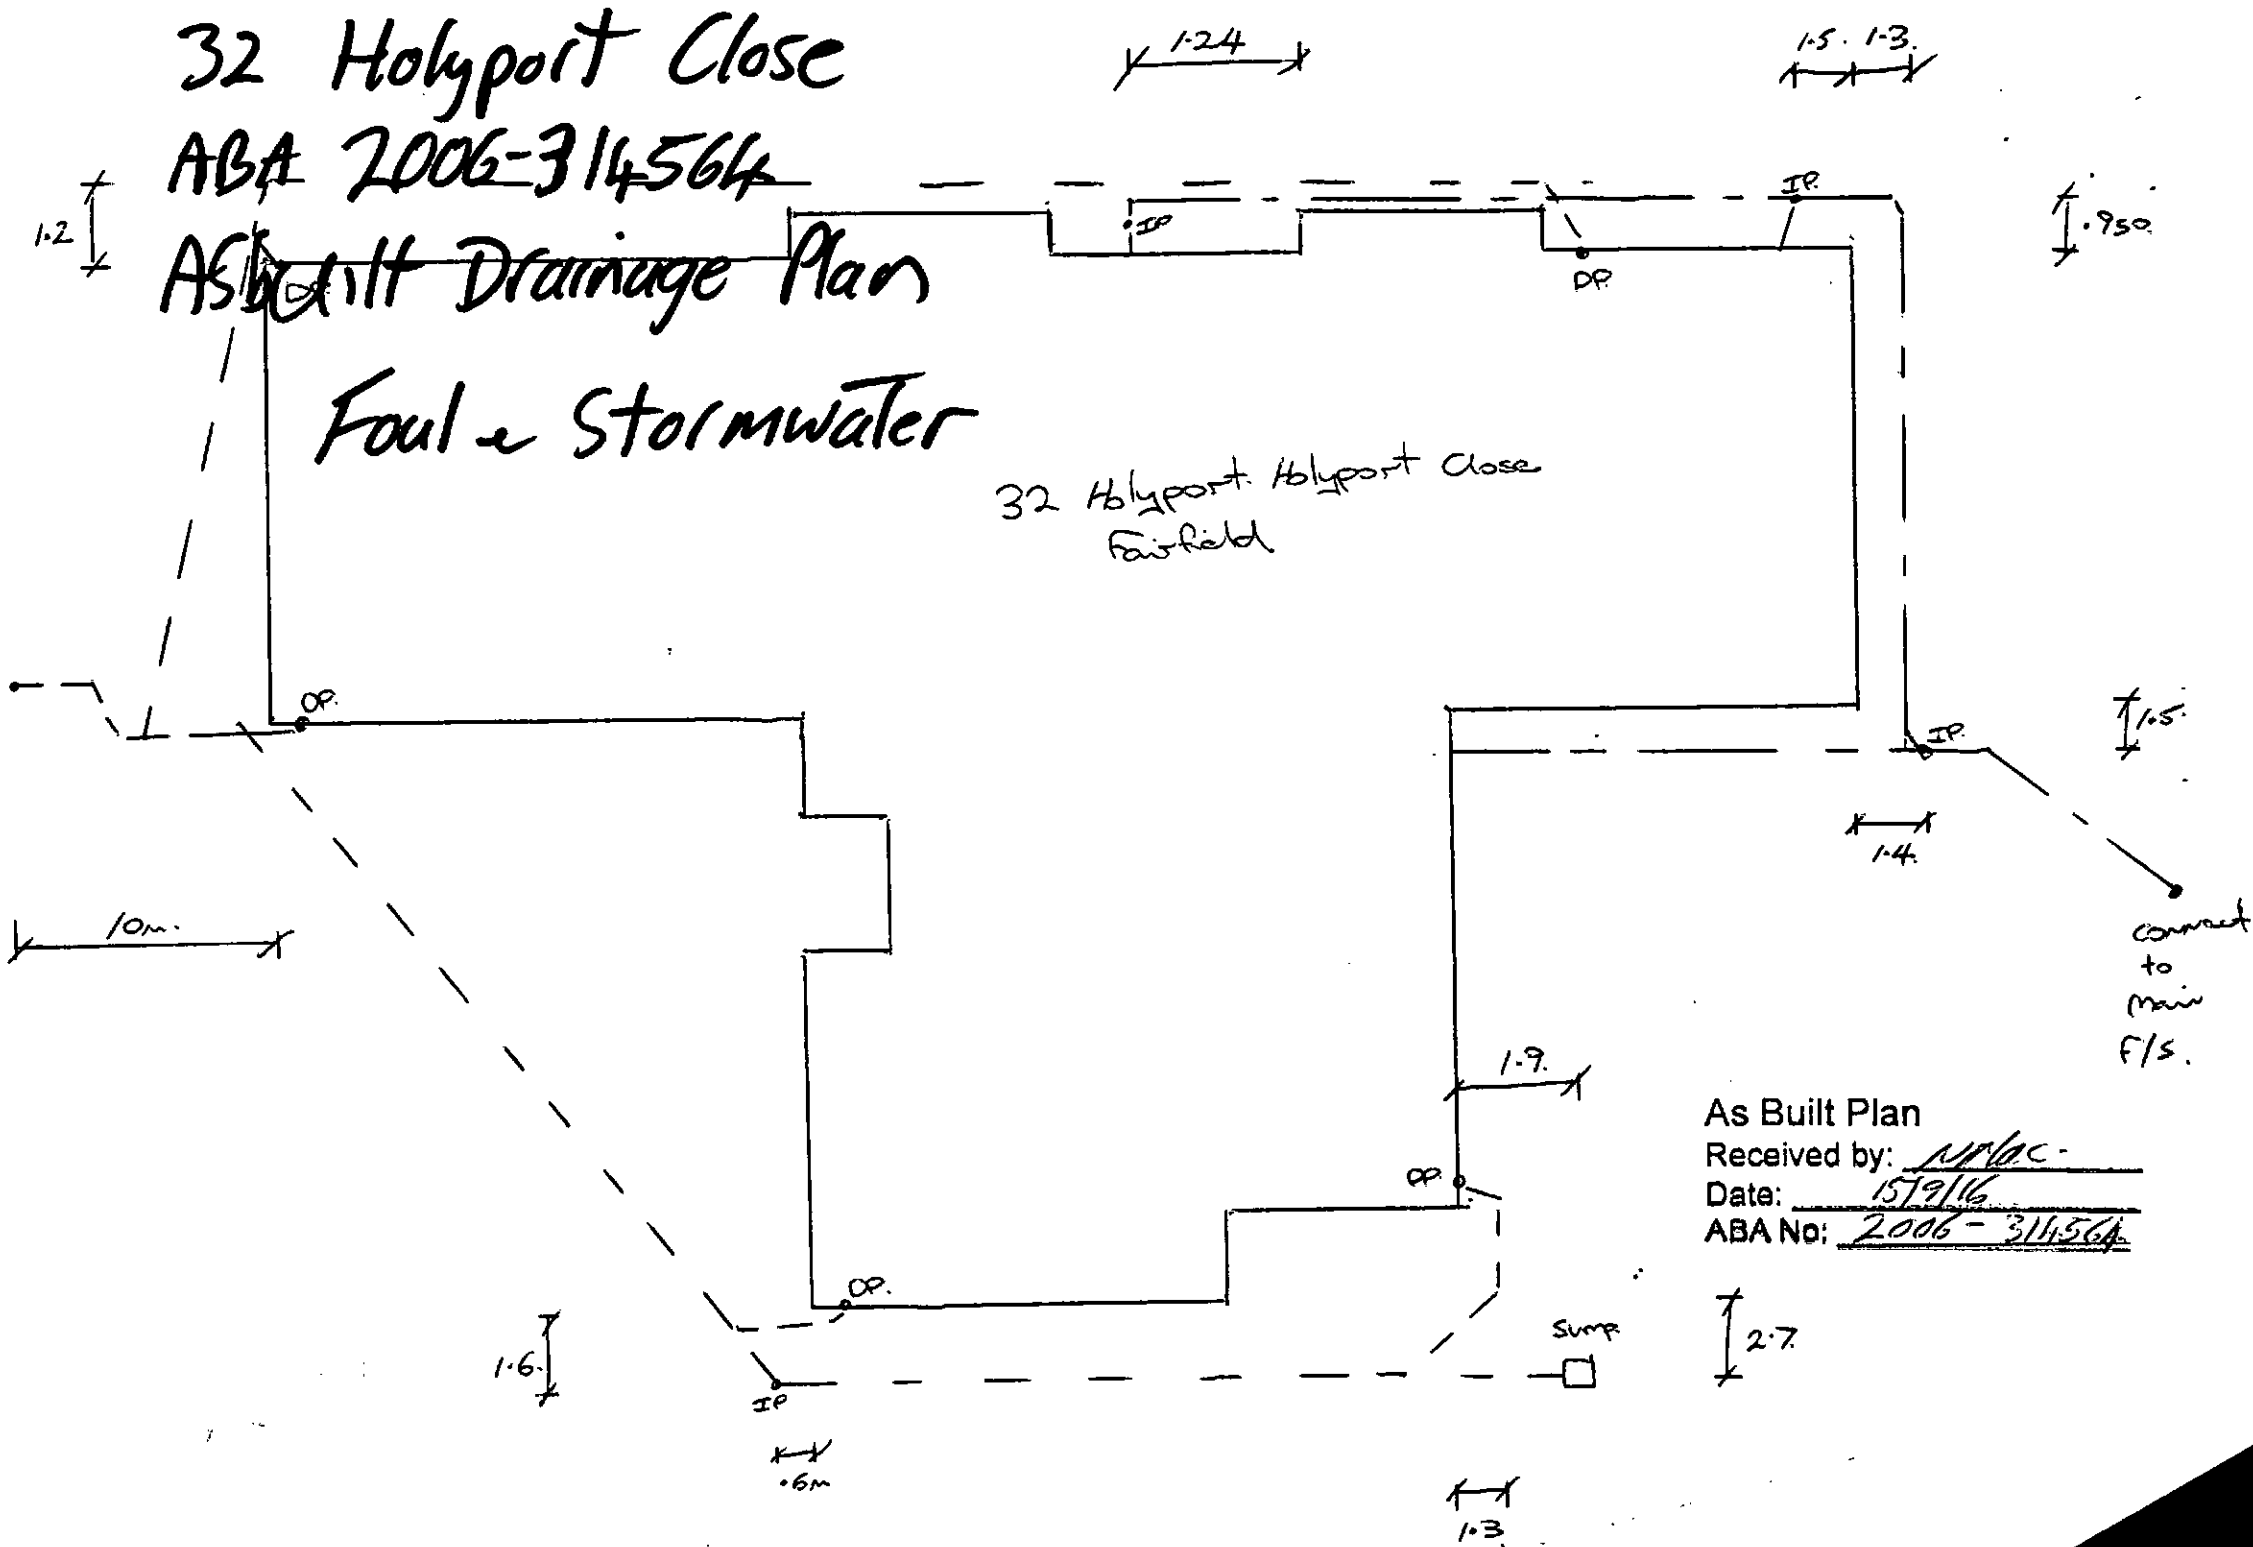 32 Holyport Close
ABA 2006-314564
Asbuilt Drainage Plan
Foul & Stormwater
1.24
1.5. 1.3.
1.2
IP
IP.
.950
DP.
32 Holyport. Holyport Close
Fairfield
DP.
1.5.
IP.
1.4.
10m.
connect
to
main
F/S.
1.9.
As Built Plan
Received by:
Date: 15/9/16
ABA No: 2006-314564
DP.
DP.
1.6.
Sump
2.7
IP
.6m
1.3